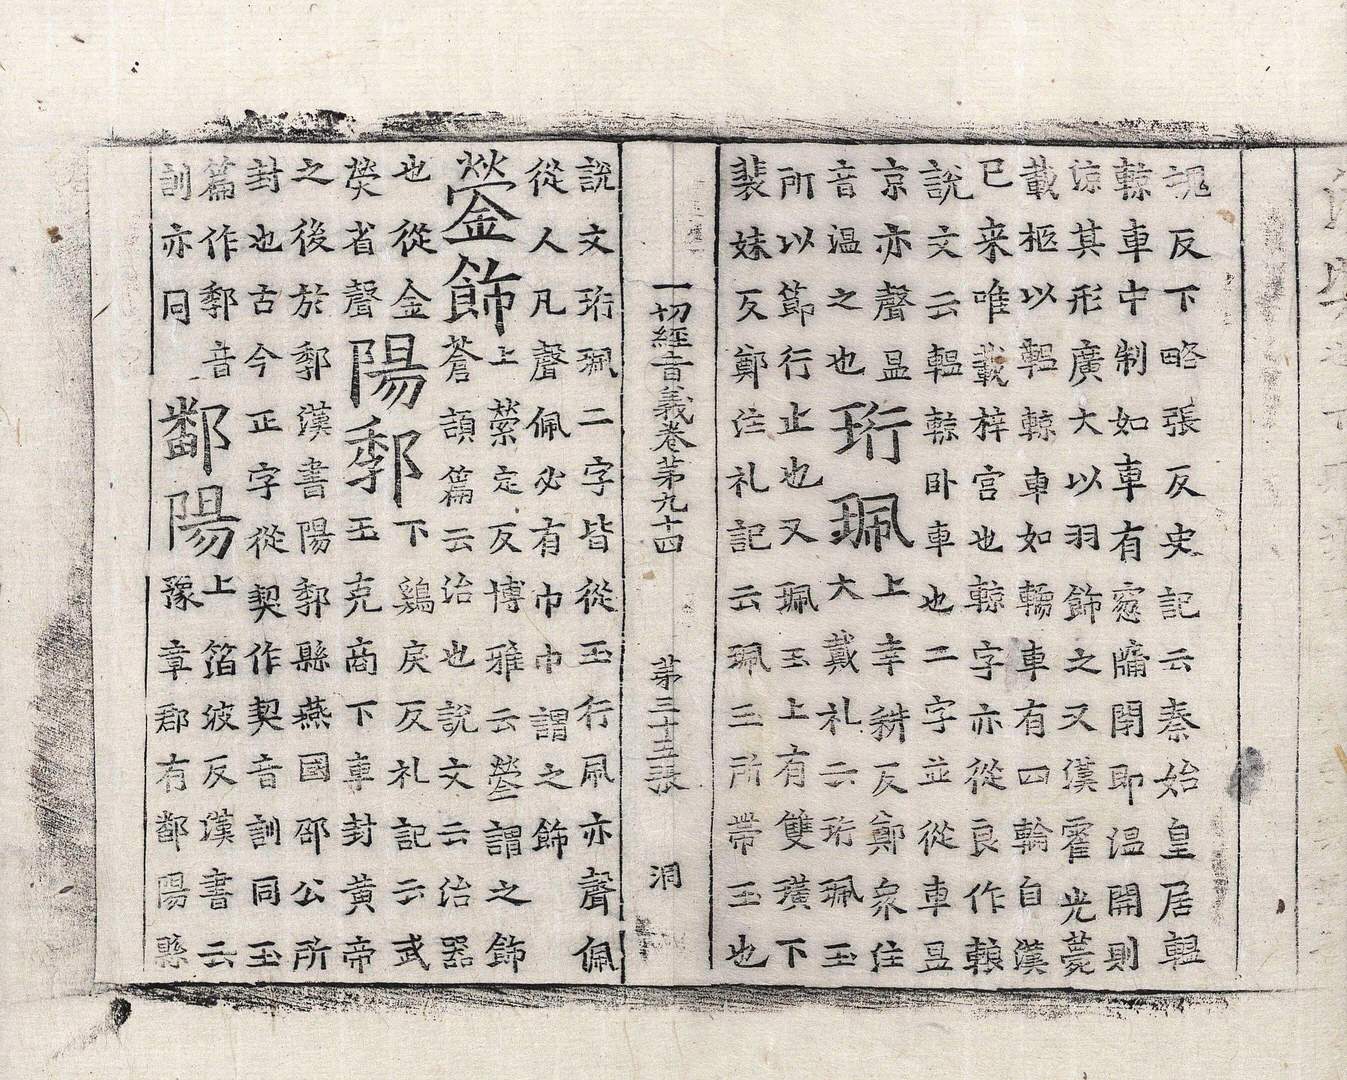 魂反下略張反史記云秦始皇居轀
輬車中制如車有窓牖閇即温開則
涼其形廣大以羽飾之又漢霍光薨
載柩以轀輬車如輀車有四輪自漢
已来唯載梓宮也輬字亦從良作䡙
說文云轀輬卧車也二字並從車昷
京亦聲昷音溫
音温之也 珩珮 上幸耕反鄭衆注
大戴礼云珩珮玉
所以節行止也又珮玉上有雙璜下
裴妹反鄭注礼記云珮三所帶玉也
一切經音義卷第九十四 第三十五張 洞
說文珩珮二字皆從玉行凧亦聲佩
從人凡聲佩必有巾巾謂之飾
蓥飾 上縈定反博雅云蓥謂之飾
蒼頡篇云治也說文云治器
也從金
熒省聲 陽鄡 下鷄戾反礼記云武
王克商下車封黄帝
之後於鄡漢書陽鄡縣燕國邵公所
封也古今正字從契作契音訓同玉
篇作鄡音
訓亦同 鄱陽 上䈇波反漢書云
豫章郡有鄱陽縣